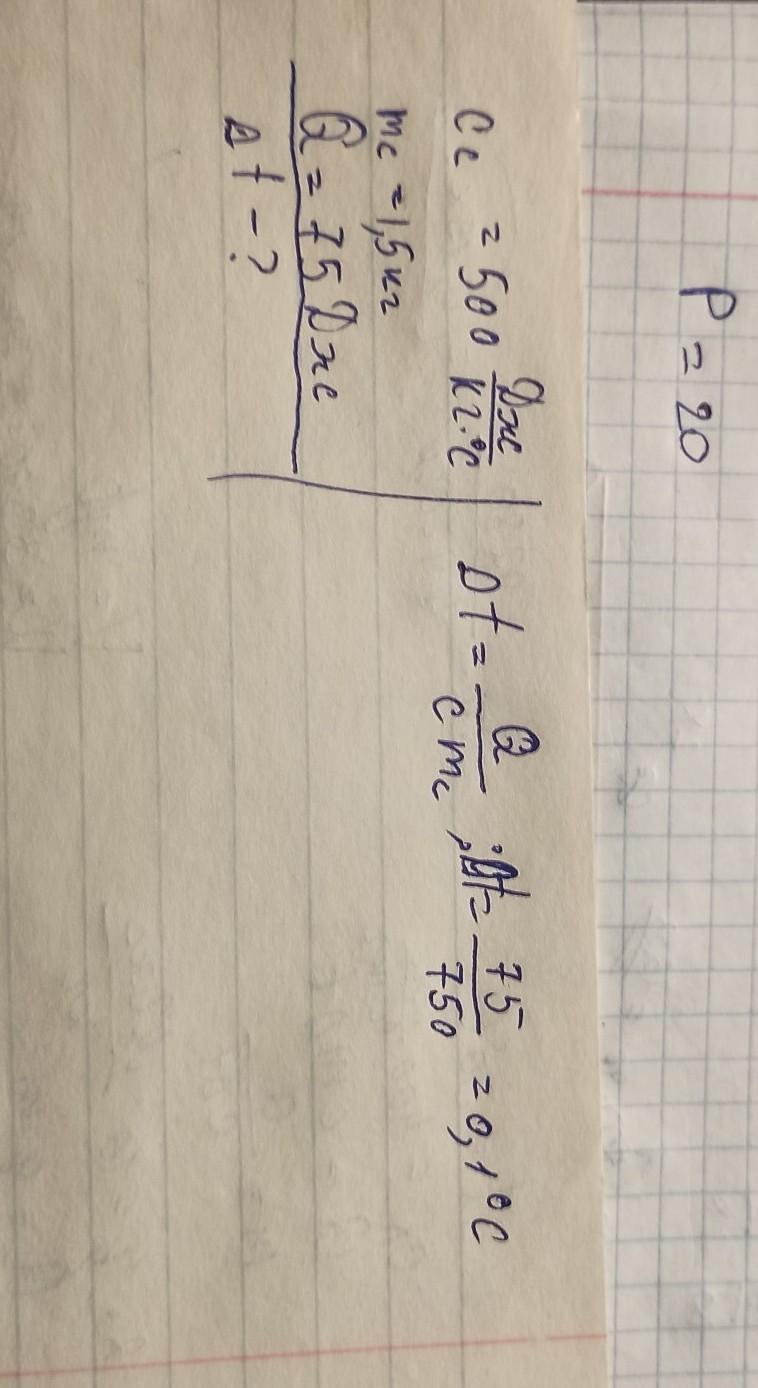 P = 20
Cc = 500 Дж/кг·°C
mc = 1,5 кг
Q = 75 Дж
Δt - ?
Δt = Q/cmc ; Δt = 75/750 = 0,1°C